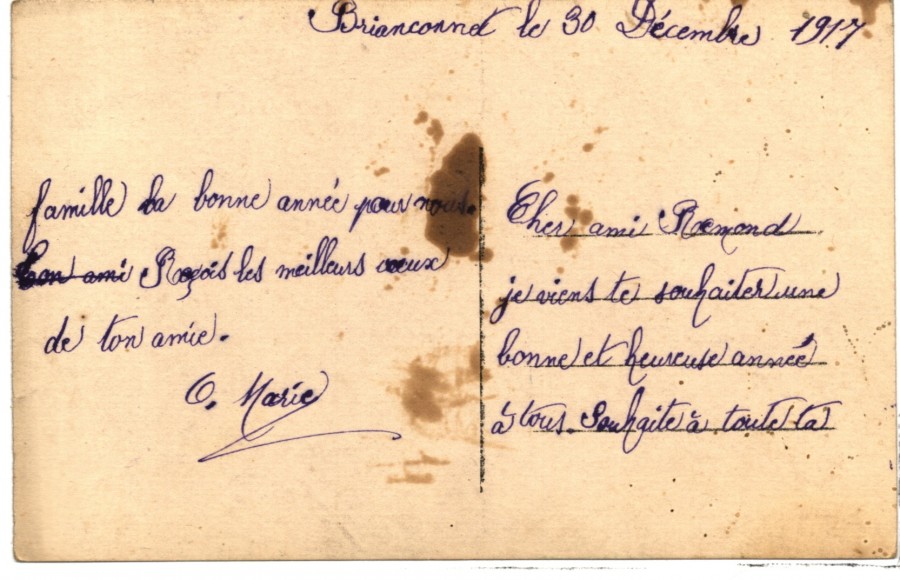 Briançonnet le 30 Décembre 1917
Cher ami Remond
je viens te souhaiter une
bonne et heureuse année
à tous. Souhaite à toute ta
famille la bonne année pour nous.
ton ami Reçois les meilleurs vœux
de ton amie.
O. Marie